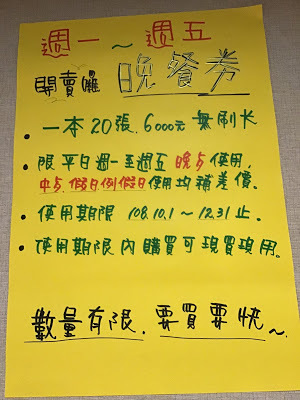 週一～週五
開賣囉 晚餐券
• 一本20張, 6000元 無刷卡
• 限平日週一至週五 晚餐使用,
中午假日例假日使用均補差價。
• 使用期限 108.10.1～12.31止.
• 使用期限內購買可現買現用。
數量有限. 要買要快～.